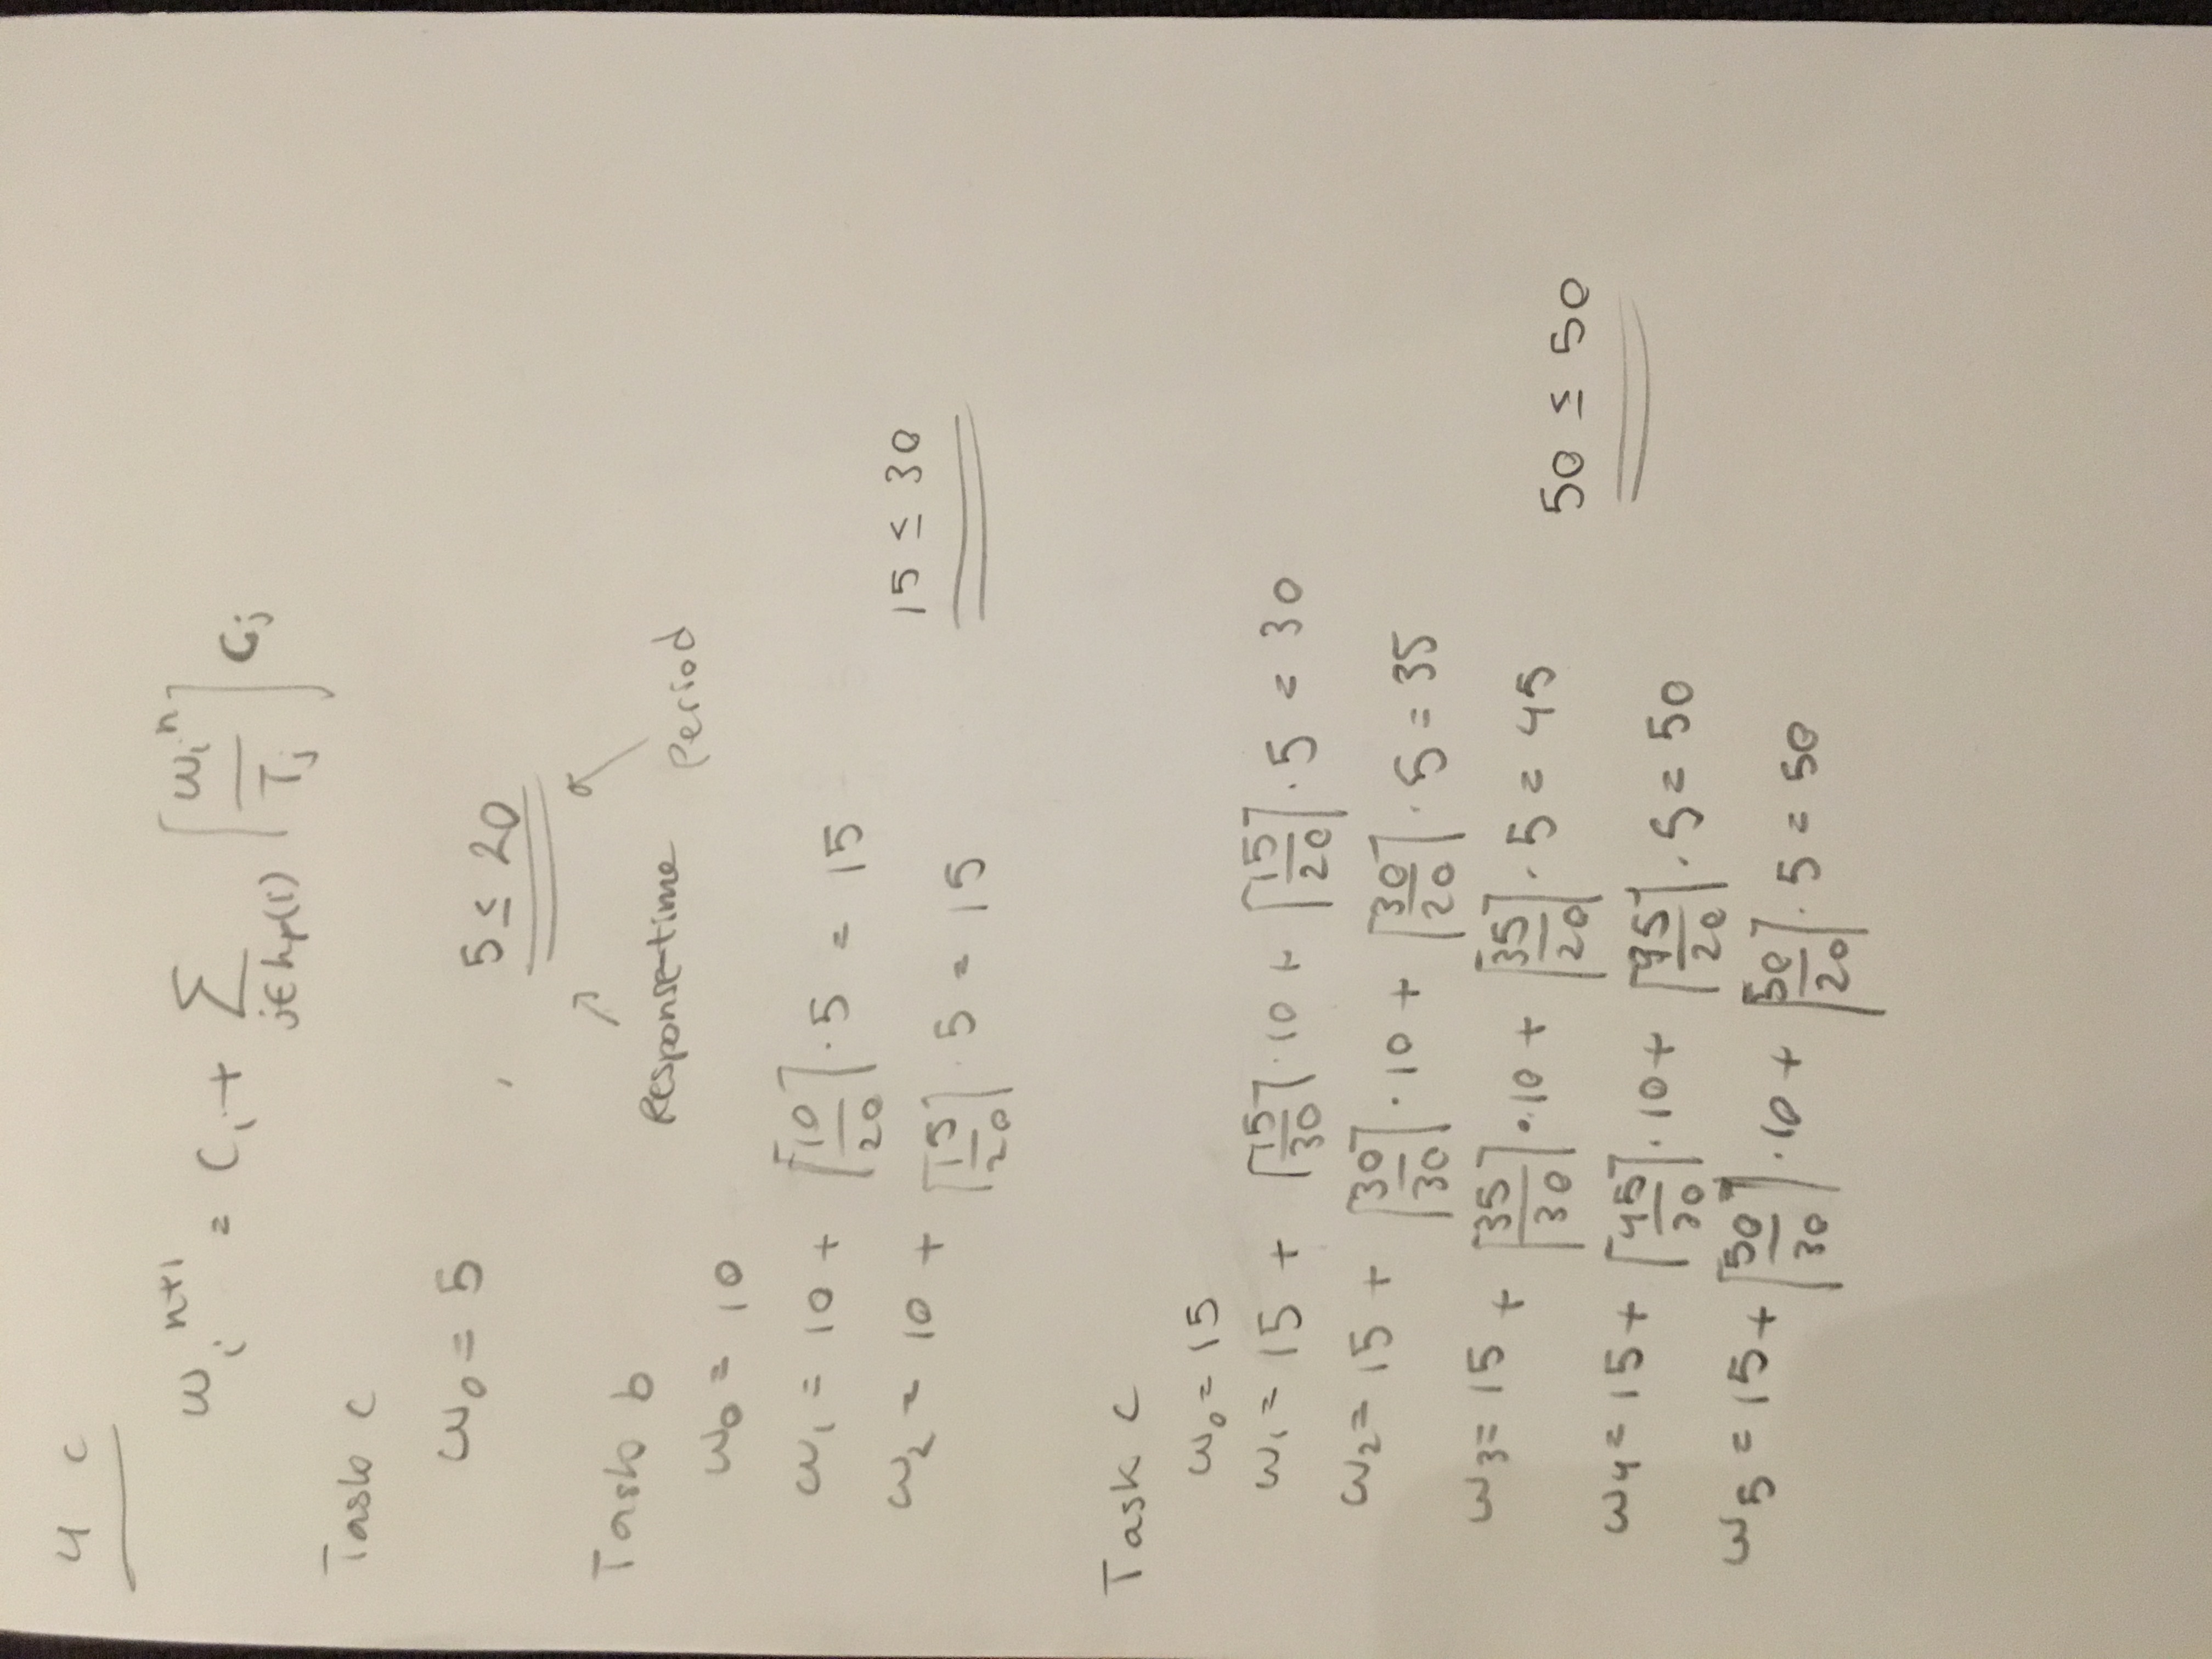 4 c
ω_i^{n+1} = C_i + Σ_{j∈hp(i)} ⌈ω_i^n / T_j⌉ C_j
Task c
ω₀ = 5
5 ≤ 20
Response-time
Period
Task b
ω₀ = 10
ω₁ = 10 + ⌈10/20⌉ · 5 = 15
ω₂ = 10 + ⌈15/20⌉ · 5 = 15
15 ≤ 30
Task c
ω₀ = 15
ω₁ = 15 + ⌈15/30⌉ · 10 + ⌈15/20⌉ · 5 = 30
ω₂ = 15 + ⌈30/30⌉ · 10 + ⌈30/20⌉ · 5 = 35
ω₃ = 15 + ⌈35/30⌉ · 10 + ⌈35/20⌉ · 5 = 45
50 ≤ 50
ω₄ = 15 + ⌈45/30⌉ · 10 + ⌈45/20⌉ · 5 = 50
ω₅ = 15 + ⌈50/30⌉ · 10 + ⌈50/20⌉ · 5 = 50